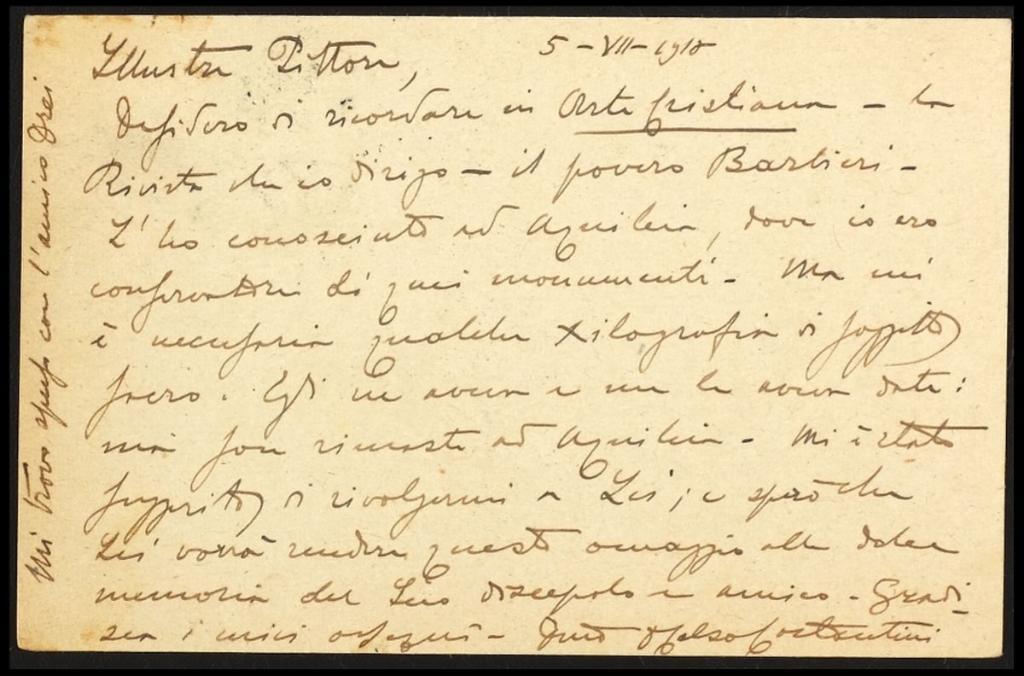 5-VII-1918
Illustre Pittore,
Desidero di ricordare in Arte Cristiana - la
Rivista che io dirigo - il povero Barbieri -
L'ho conosciuto ad Aquileia, dove io ero
conservatore di quei monumenti - Ma mi
è necessaria qualche xilografia di soggetto
sacro. Egli ne aveva e me le aveva date:
ma son rimaste ad Aquileia - Mi è stato
suggerito di rivolgermi a Lei; e spero che
Lei vorrà rendere questo omaggio alla dolce
memoria del Suo discepolo e amico - Gradi-
sca i miei ossequi - Celso Costantini
Mi trovo spesso con l'amico Drei